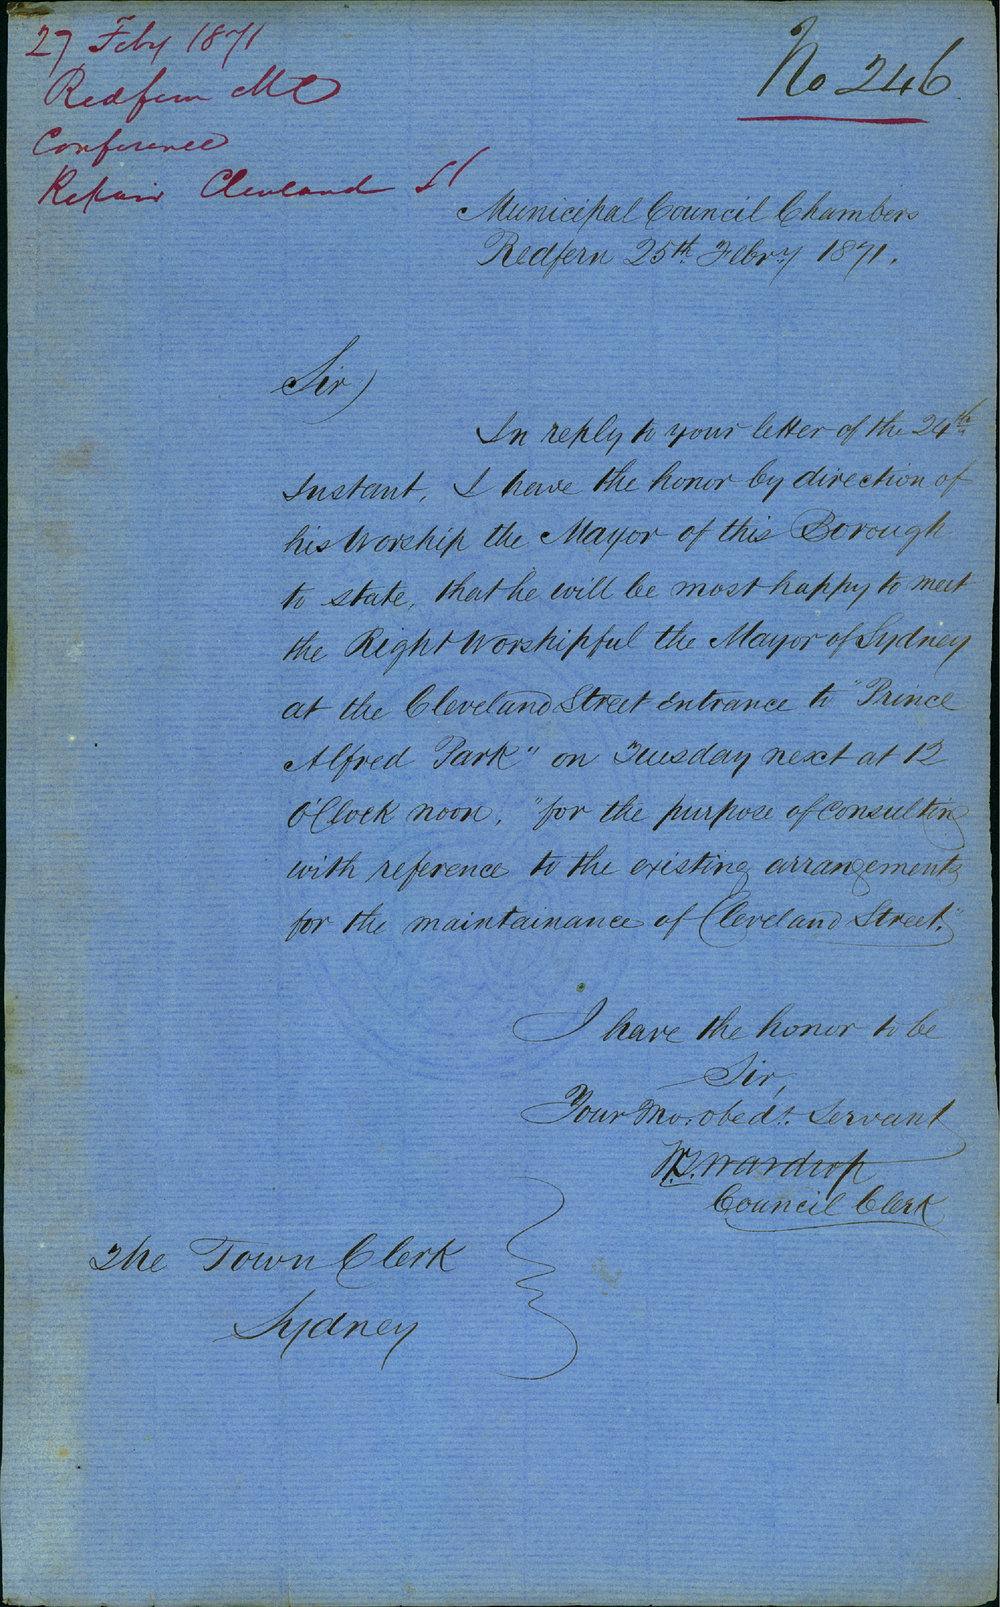 27 Feby 1871
Redfern MC
Conference
Repair Cleveland St
No 246
Municipal Council Chambers
Redfern 25th Febry 1871.
Sir,
In reply to your letter of the 24th
Instant, I have the honor by direction of
his Worship the Mayor of this Borough
to state, that he will be most happy to meet
the Right Worshipful the Mayor of Sydney
at the Cleveland Street entrance to "Prince
Alfred Park" on Tuesday next at 12
O'Clock noon, "for the purpose of consulting
with reference to the existing arrangements
for the maintainance of Cleveland Street."
I have the honor to be
Sir,
Your Mo. obedt. Servant
Wardrop
Council Clerk
The Town Clerk
Sydney